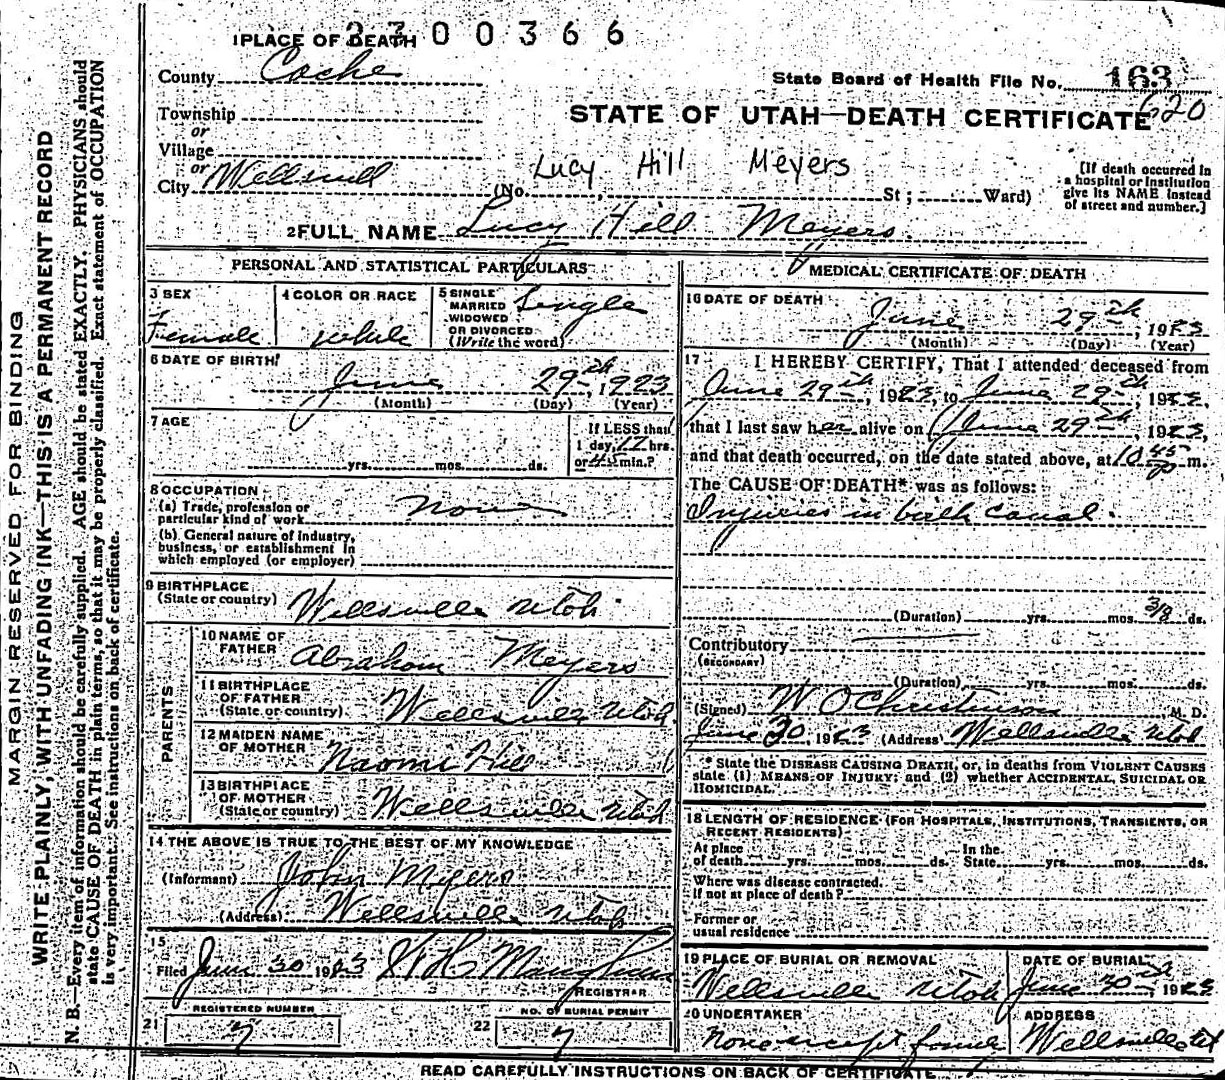 MARGIN RESERVED FOR BINDING
WRITE PLAINLY, WITH UNFADING INK—THIS IS A PERMANENT RECORD
N. B.—Every item of information should be carefully supplied. AGE should be stated EXACTLY. PHYSICIANS should
state CAUSE OF DEATH in plain terms, so that it may be properly classified. Exact statement of OCCUPATION
is very important. See instructions on back of certificate.
2300366
1 PLACE OF DEATH
County Cache
State Board of Health File No. 163
620
Township
or
Village
or
City Wellsvill
STATE OF UTAH—DEATH CERTIFICATE
Lucy Hill Meyers
(No. St; Ward)
[If death occurred in
a hospital or institution
give its NAME instead
of street and number.]
2 FULL NAME Lucy Hill Meyers.
PERSONAL AND STATISTICAL PARTICULARS
3 SEX
Female
4 COLOR OR RACE
white
5 SINGLE
MARRIED
WIDOWED
OR DIVORCED
(Write the word)
Single
6 DATE OF BIRTH
June 29th, 1923
(Month) (Day) (Year)
7 AGE
yrs. mos. ds.
If LESS than
1 day, 12 hrs.
or 45 min.?
8 OCCUPATION
(a) Trade, profession or
particular kind of work
(b) General nature of industry,
business, or establishment in
which employed (or employer)
9 BIRTHPLACE
(State or country) Wellsville Utah
PARENTS
10 NAME OF
FATHER Abraham Meyers
11 BIRTHPLACE
OF FATHER
(State or country) Wellsville Utah
12 MAIDEN NAME
OF MOTHER Naomi Hill
13 BIRTHPLACE
OF MOTHER
(State or country) Wellsville Utah
14 THE ABOVE IS TRUE TO THE BEST OF MY KNOWLEDGE
(Informant) John Myers
(Address) Wellsville Utah
15
Filed June 30 1923 W H Maughan
REGISTRAR
21 REGISTERED NUMBER
7
22 NO. OF BURIAL PERMIT
7
MEDICAL CERTIFICATE OF DEATH
16 DATE OF DEATH
June 29th, 1923
(Month) (Day) (Year)
17 I HEREBY CERTIFY, That I attended deceased from
June 29th, 1923, to June 29th, 1923,
that I last saw her alive on June 29th, 1923,
and that death occurred, on the date stated above, at 10 45 p m.
The CAUSE OF DEATH* was as follows:
Injuries in birth canal.
(Duration) yrs. mos. 3/8 ds.
Contributory
(SECONDARY)
(Duration) yrs. mos. ds.
(Signed) W O Christenson M. D.
June 30, 1923 (Address) Wellsville Utah
* State the DISEASE CAUSING DEATH, or, in deaths from VIOLENT CAUSES
state (1) MEANS OF INJURY; and (2) whether ACCIDENTAL, SUICIDAL OR
HOMICIDAL.
18 LENGTH OF RESIDENCE (FOR HOSPITALS, INSTITUTIONS, TRANSIENTS, OR
RECENT RESIDENTS)
At place
of death yrs. mos. ds.
In the
State yrs. mos. ds.
Where was disease contracted.
If not at place of death?
Former or
usual residence
19 PLACE OF BURIAL OR REMOVAL
Wellsville Utah
DATE OF BURIAL
June 30th, 1923
20 UNDERTAKER
None except family
ADDRESS
Wellsville Ut
READ CAREFULLY INSTRUCTIONS ON BACK OF CERTIFICATE